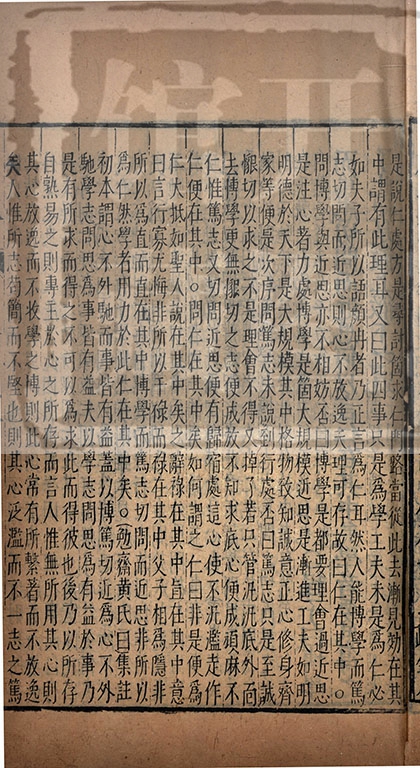 是說仁處方是尋討箇求仁路當從此去漸見効在其
中謂有此理耳又曰此四事只是爲學工夫未是爲仁必
如夫子所以語顏冉者乃正言爲仁耳然人能博學而篤
志切問而近思則心不放逸天理可存故曰仁在其中○
問博學與近思亦不相妨否曰博學是都要理會過近思
是注心著力處博學是箇大規模近思是漸進工夫如明
明德於天下是大規模其中格物致知誠意正心修身齊
家等便是次序問篤志未說到行處否曰篤志只是至誠
懇切以求之不是理會不得又掉了若只管泛泛底外面
去博學更無懇切之志便成放不知求底心便成頑麻不
仁惟篤志又切問近思便有歸宿處這心使不泛濫走作
仁便在其中○問仁在其中矣如何謂之仁曰非是便爲
仁大抵如聖人說在其中矣之辭祿在其中直在其中意
曰言行寡尤悔非所以干祿而祿在其中父子相爲隱非
所以爲直而直在其中博學而篤志切問而近思非所以
爲仁然學者用力於此仁在其中矣○勉齋黃氏曰集註
初本謂心不外馳而事皆有益蓋以博篤切近爲心不外
馳學志問思爲事皆有益夫以學志問思爲有益於事乃
是有所求而得之不可以爲求此而得彼也後乃以所存
自熟易之則專主於心之所存而言人惟無所用其心則
其心放逸而不收學之博則此心常有所繫著而不放逸
矣人惟所志苟簡而不堅也則其心泛濫而不一志之篤